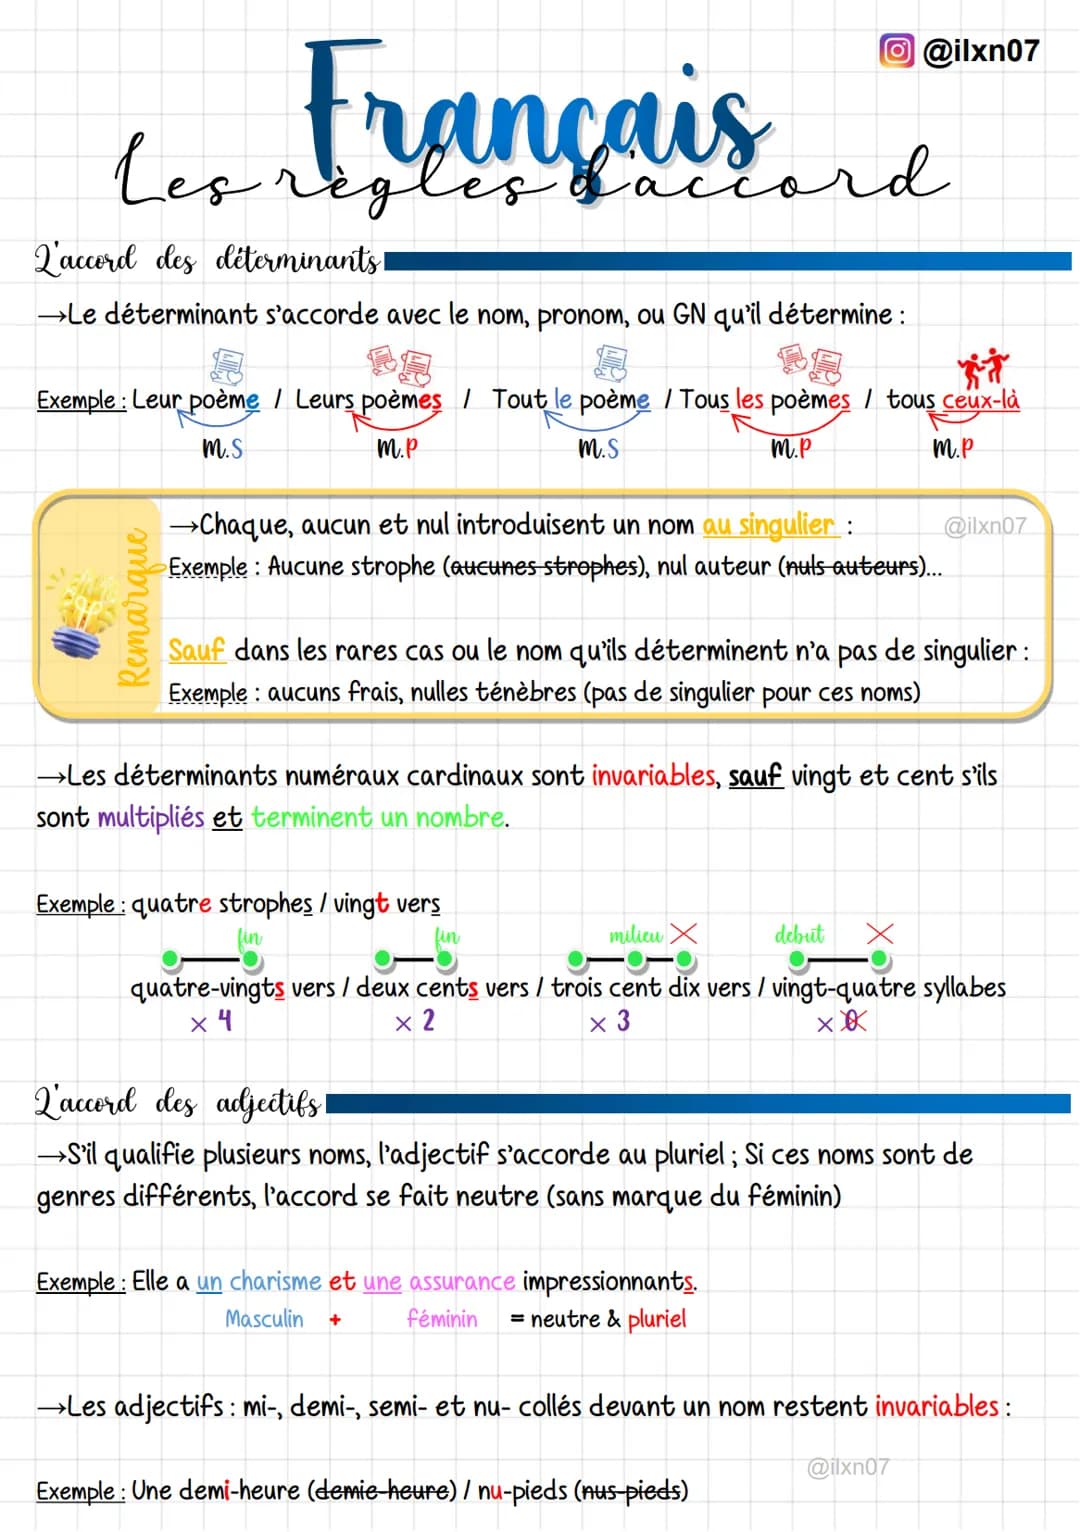 @ilxn07
Français
Les règles d'accord
L'accord des déterminants
→Le déterminant s'accorde avec le nom, pronom, ou GN qu'il détermine :
Exemple : Leur poème / Leurs poèmes / Tout le poème / Tous les poèmes / tous ceux-là
m.S m.P m.S m.P m.P
Remarque
→Chaque, aucun et nul introduisent un nom au singulier :
@ilxn07
Exemple : Aucune strophe (aucunes strophes), nul auteur (nuls auteurs)...
Sauf dans les rares cas ou le nom qu'ils déterminent n'a pas de singulier :
Exemple : aucuns frais, nulles ténèbres (pas de singulier pour ces noms)
→Les déterminants numéraux cardinaux sont invariables, sauf vingt et cent s'ils
sont multipliés et terminent un nombre.
Exemple : quatre strophes / vingt vers
fin fin milieu debut
quatre-vingts vers / deux cents vers / trois cent dix vers / vingt-quatre syllabes
× 4 × 2 × 3 × 0
L'accord des adjectifs
→S'il qualifie plusieurs noms, l'adjectif s'accorde au pluriel ; Si ces noms sont de
genres différents, l'accord se fait neutre (sans marque du féminin)
Exemple : Elle a un charisme et une assurance impressionnants.
Masculin + féminin = neutre & pluriel
→Les adjectifs : mi-, demi-, semi- et nu- collés devant un nom restent invariables :
@ilxn07
Exemple : Une demi-heure (demie-heure) / nu-pieds (nus-pieds)